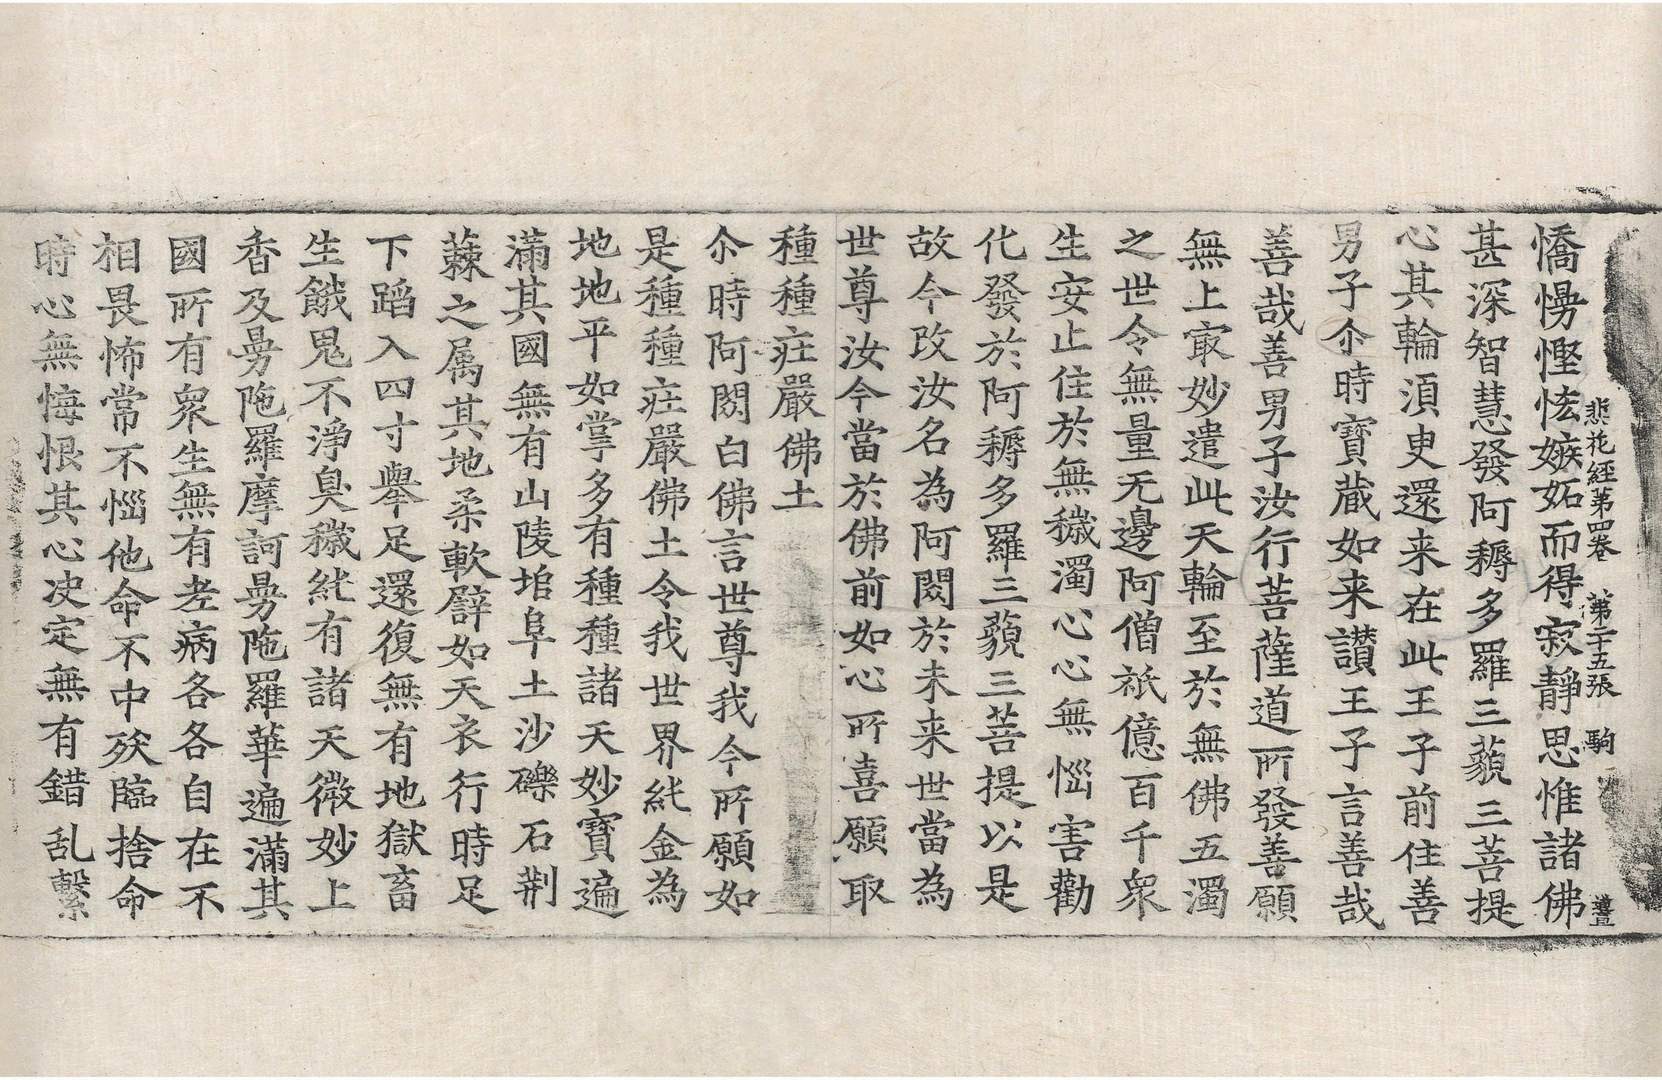 悲花經第四卷　第二十五張　駒
憍慢慳悋嫉妬而得寂靜思惟諸佛
甚深智慧發阿耨多羅三藐三菩提
心其輪湏臾還来在此王子前住善
男子尒時寶藏如来讃王子言善哉
善哉善男子汝行菩薩道所發善願
無上㝡妙遣此天輪至於無佛五濁
之世令無量无邊阿僧祇億百千衆
生安止住於無穢濁心心無惱害勸
化發於阿耨多羅三藐三菩提以是
故今改汝名為阿閦於未来世當為
世尊汝今當於佛前如心所喜願取
種種庄嚴佛土
尒時阿閦白佛言世尊我今所願如
是種種庄嚴佛土令我世界純金為
地地平如掌多有種種諸天妙寶遍
滿其國無有山陵塠阜土沙礫石荆
蕀之属其地柔軟譬如天衣行時足
下蹈入四寸舉足還復無有地獄畜
生餓鬼不淨臭穢純有諸天微妙上
香及曼陁羅摩訶曼陁羅華遍滿其
國所有衆生無有老病各各自在不
相畏怖常不惱他命不中殀臨捨命
時心無悔恨其心决定無有錯乱繫